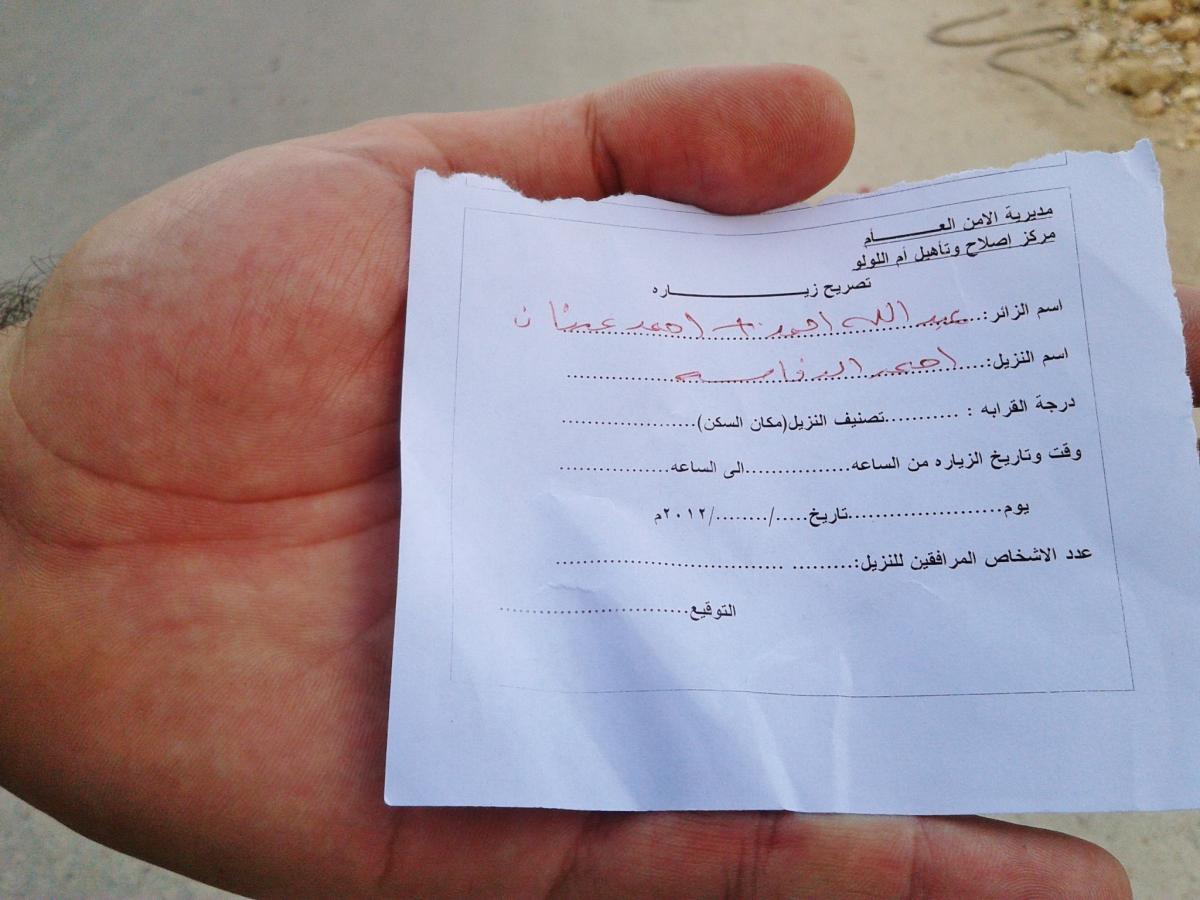 مديرية الامن العـــــــــام
مركز إصلاح وتأهيل أم اللولو
تصريح زيـــــــــــــــاره
اسم الزائر:...عبد الله احمد + احمد عدنان
اسم النزيل:.....احمد الدقامسه.....................
درجة القرابه : ...........تصنيف النزيل(مكان السكن).....................
وقت وتاريخ الزياره من الساعه................الى الساعه..................
يوم......................تاريخ...../......../٢٠١٢م
عدد الاشخاص المرافقين للنزيل:......... ....................................
التوقيع..............................